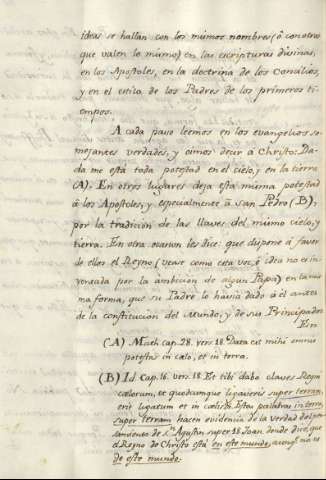 ideas se hallan con los mismos nombres (ô con otros
que valen lo mismo) en las escripturas divinas,
en los Apostoles, en la doctrina de los Concilios,
y en el estilo de los Padres de los primeros ti-
empos.
A cada paso leemos en los evangelios se-
mejantes verdades, y oimos decir â Christo: Da-
da me está toda potestad en el cielo, y en la tierra
(A). En otros lugares deja esta misma potestad
â los Apostoles, y especialmente â san Pedro (B),
por la tradicion de las llaves del mismo cielo, y
tierra. En otra ocasion les dice: que dispone â favor
de ellos el Reyno (vease como esta voz, ê idea no es in-
ventada por la ambicion de algun Papa) en la mis-
ma forma, que su Padre lo havia dado â el antes
de la constitucion del Mundo, y de sus Principados
En
(A) Math cap. 28. vers. 18. Data est mihi omnis
potestas in cœlo, et in terra.
(B) Id. Cap. 16. vers. 18. Et tibi dabo claves Regni
cœlorum, et quodcumque ligaveris super terram,
erit ligatum et in cœlis. Estas palabras in terra,
super terram hacen evidencia de la verdad del pen-
samiento de Sn. Agustin super Sn Joan donde dice, que
el Reyno de Christo está en este mundo, aunq.e no es
de este mundo.